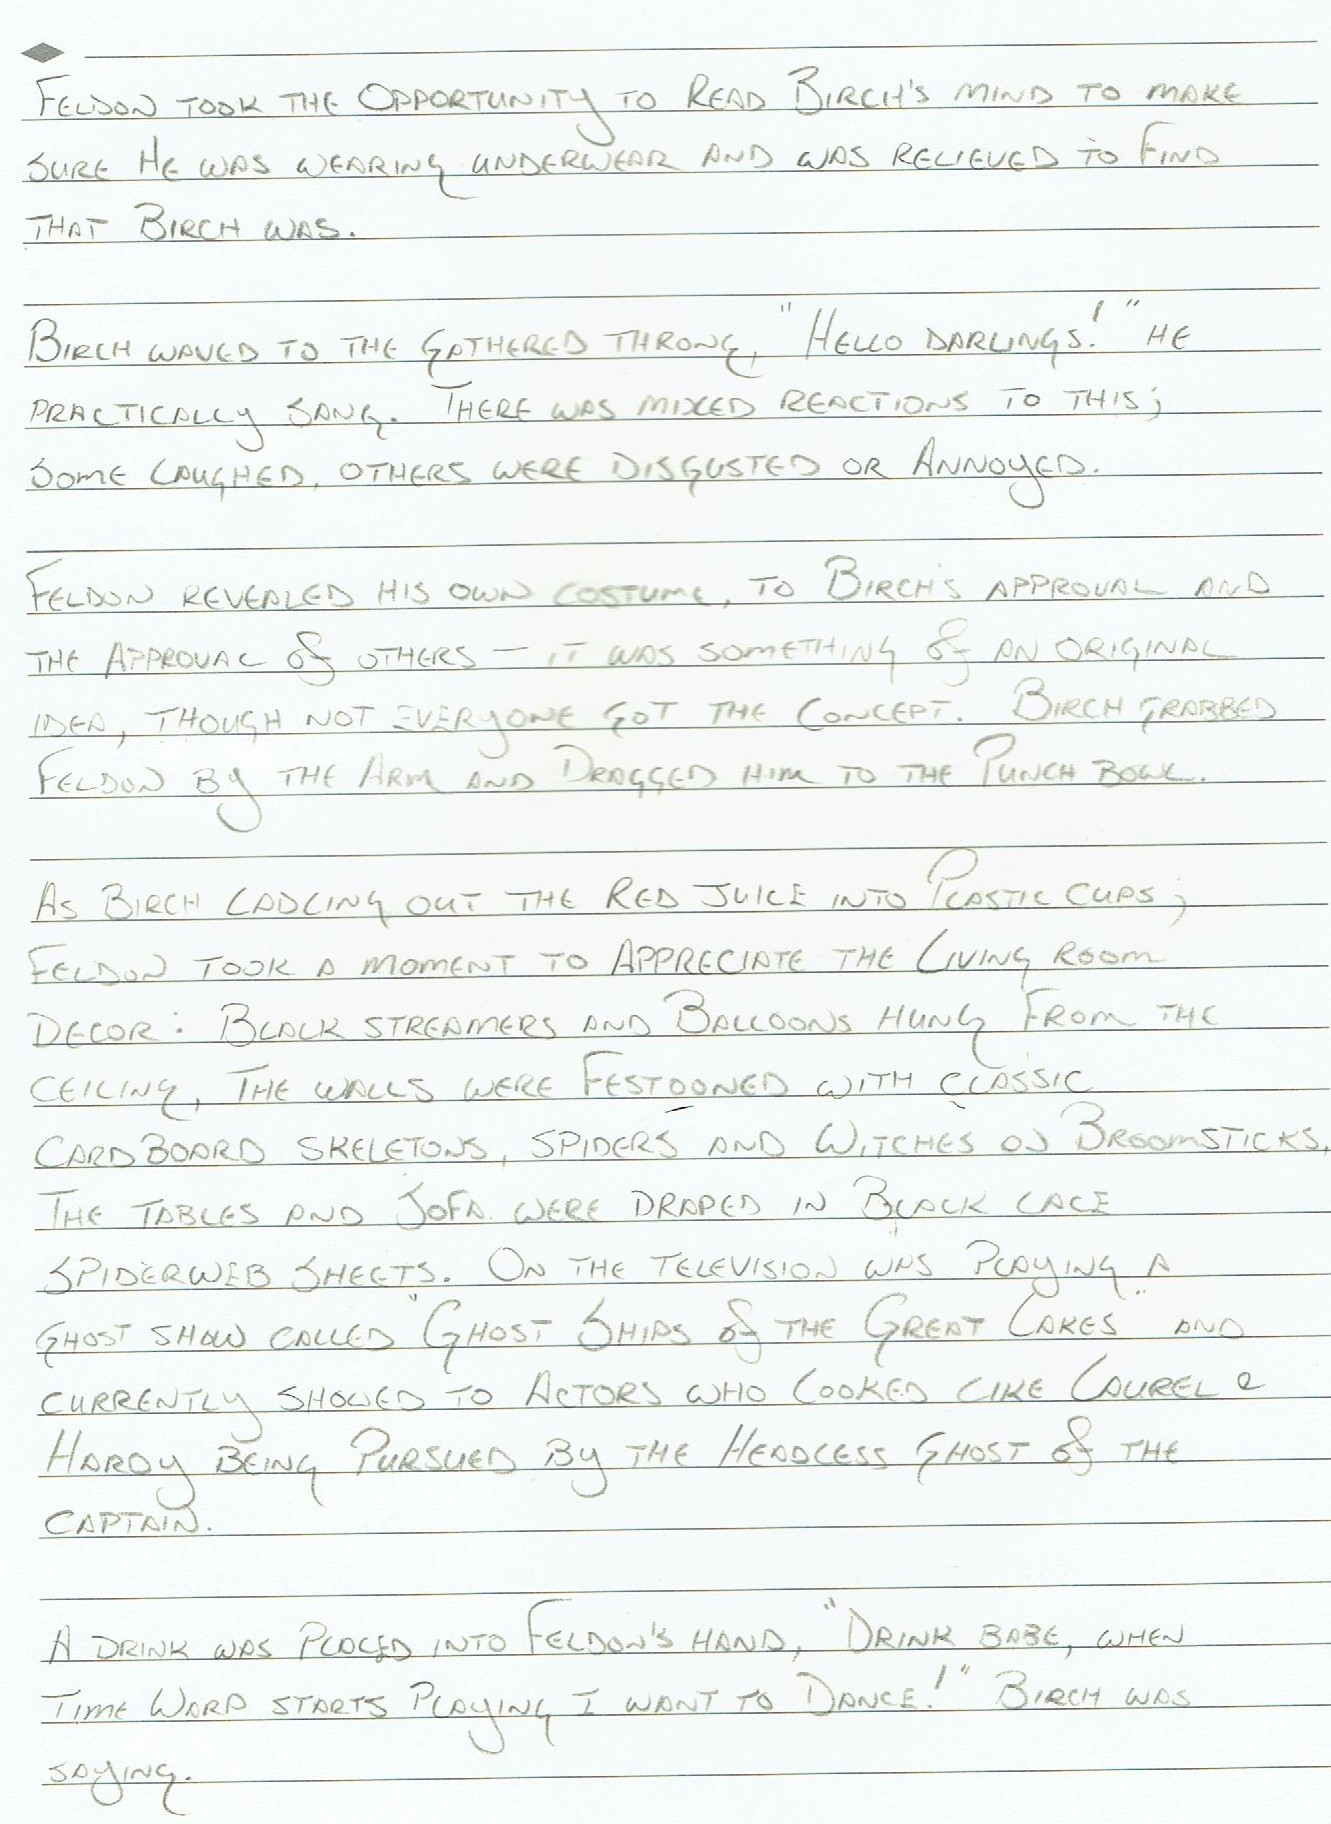 FELDON TOOK THE OPPORTUNITY TO READ BIRCH'S MIND TO MAKE
SURE HE WAS WEARING UNDERWEAR AND WAS RELIEVED TO FIND
THAT BIRCH WAS.
BIRCH WAVED TO THE GATHERED THRONG, "HELLO DARLINGS!" HE
PRACTICALLY SANG. THERE WAS MIXED REACTIONS TO THIS;
SOME LAUGHED, OTHERS WERE DISGUSTED OR ANNOYED.
FELDON REVEALED HIS OWN COSTUME, TO BIRCH'S APPROVAL AND
THE APPROVAL OF OTHERS — IT WAS SOMETHING OF AN ORIGINAL
IDEA, THOUGH NOT EVERYONE GOT THE CONCEPT. BIRCH GRABBED
FELDON BY THE ARM AND DRAGGED HIM TO THE PUNCH BOWL.
AS BIRCH LADLING OUT THE RED JUICE INTO PLASTIC CUPS;
FELDON TOOK A MOMENT TO APPRECIATE THE LIVING ROOM
DECOR: BLACK STREAMERS AND BALLOONS HUNG FROM THE
CEILING, THE WALLS WERE FESTOONED WITH CLASSIC
CARDBOARD SKELETONS, SPIDERS AND WITCHES ON BROOMSTICKS.
THE TABLES AND SOFA WERE DRAPED IN BLACK LACE
SPIDERWEB SHEETS. ON THE TELEVISION WAS PLAYING A
GHOST SHOW CALLED "GHOST SHIPS OF THE GREAT LAKES" AND
CURRENTLY SHOWED TO ACTORS WHO LOOKED LIKE LAUREL &
HARDY BEING PURSUED BY THE HEADLESS GHOST OF THE
CAPTAIN.
A DRINK WAS PLACED INTO FELDON'S HAND, "DRINK BABE, WHEN
TIME WARP STARTS PLAYING I WANT TO DANCE!" BIRCH WAS
SAYING.